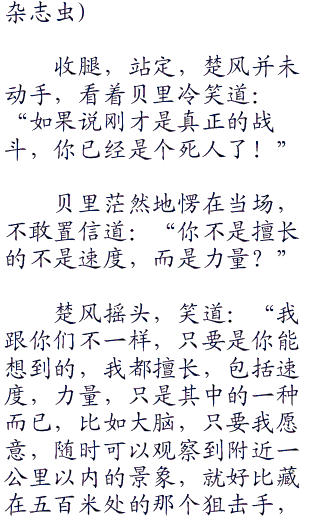 杂志虫)
收腿，站定，楚风并未
动手，看着贝里冷笑道：
“如果说刚才是真正的战
斗，你已经是个死人了！”
贝里茫然地愣在当场，
不敢置信道：“你不是擅长
的不是速度，而是力量？”
楚风摇头，笑道：“我
跟你们不一样，只要是你能
想到的，我都擅长，包括速
度，力量，只是其中的一种
而已，比如大脑，只要我愿
意，随时可以观察到附近一
公里以内的景象，就好比藏
在五百米处的那个狙击手，